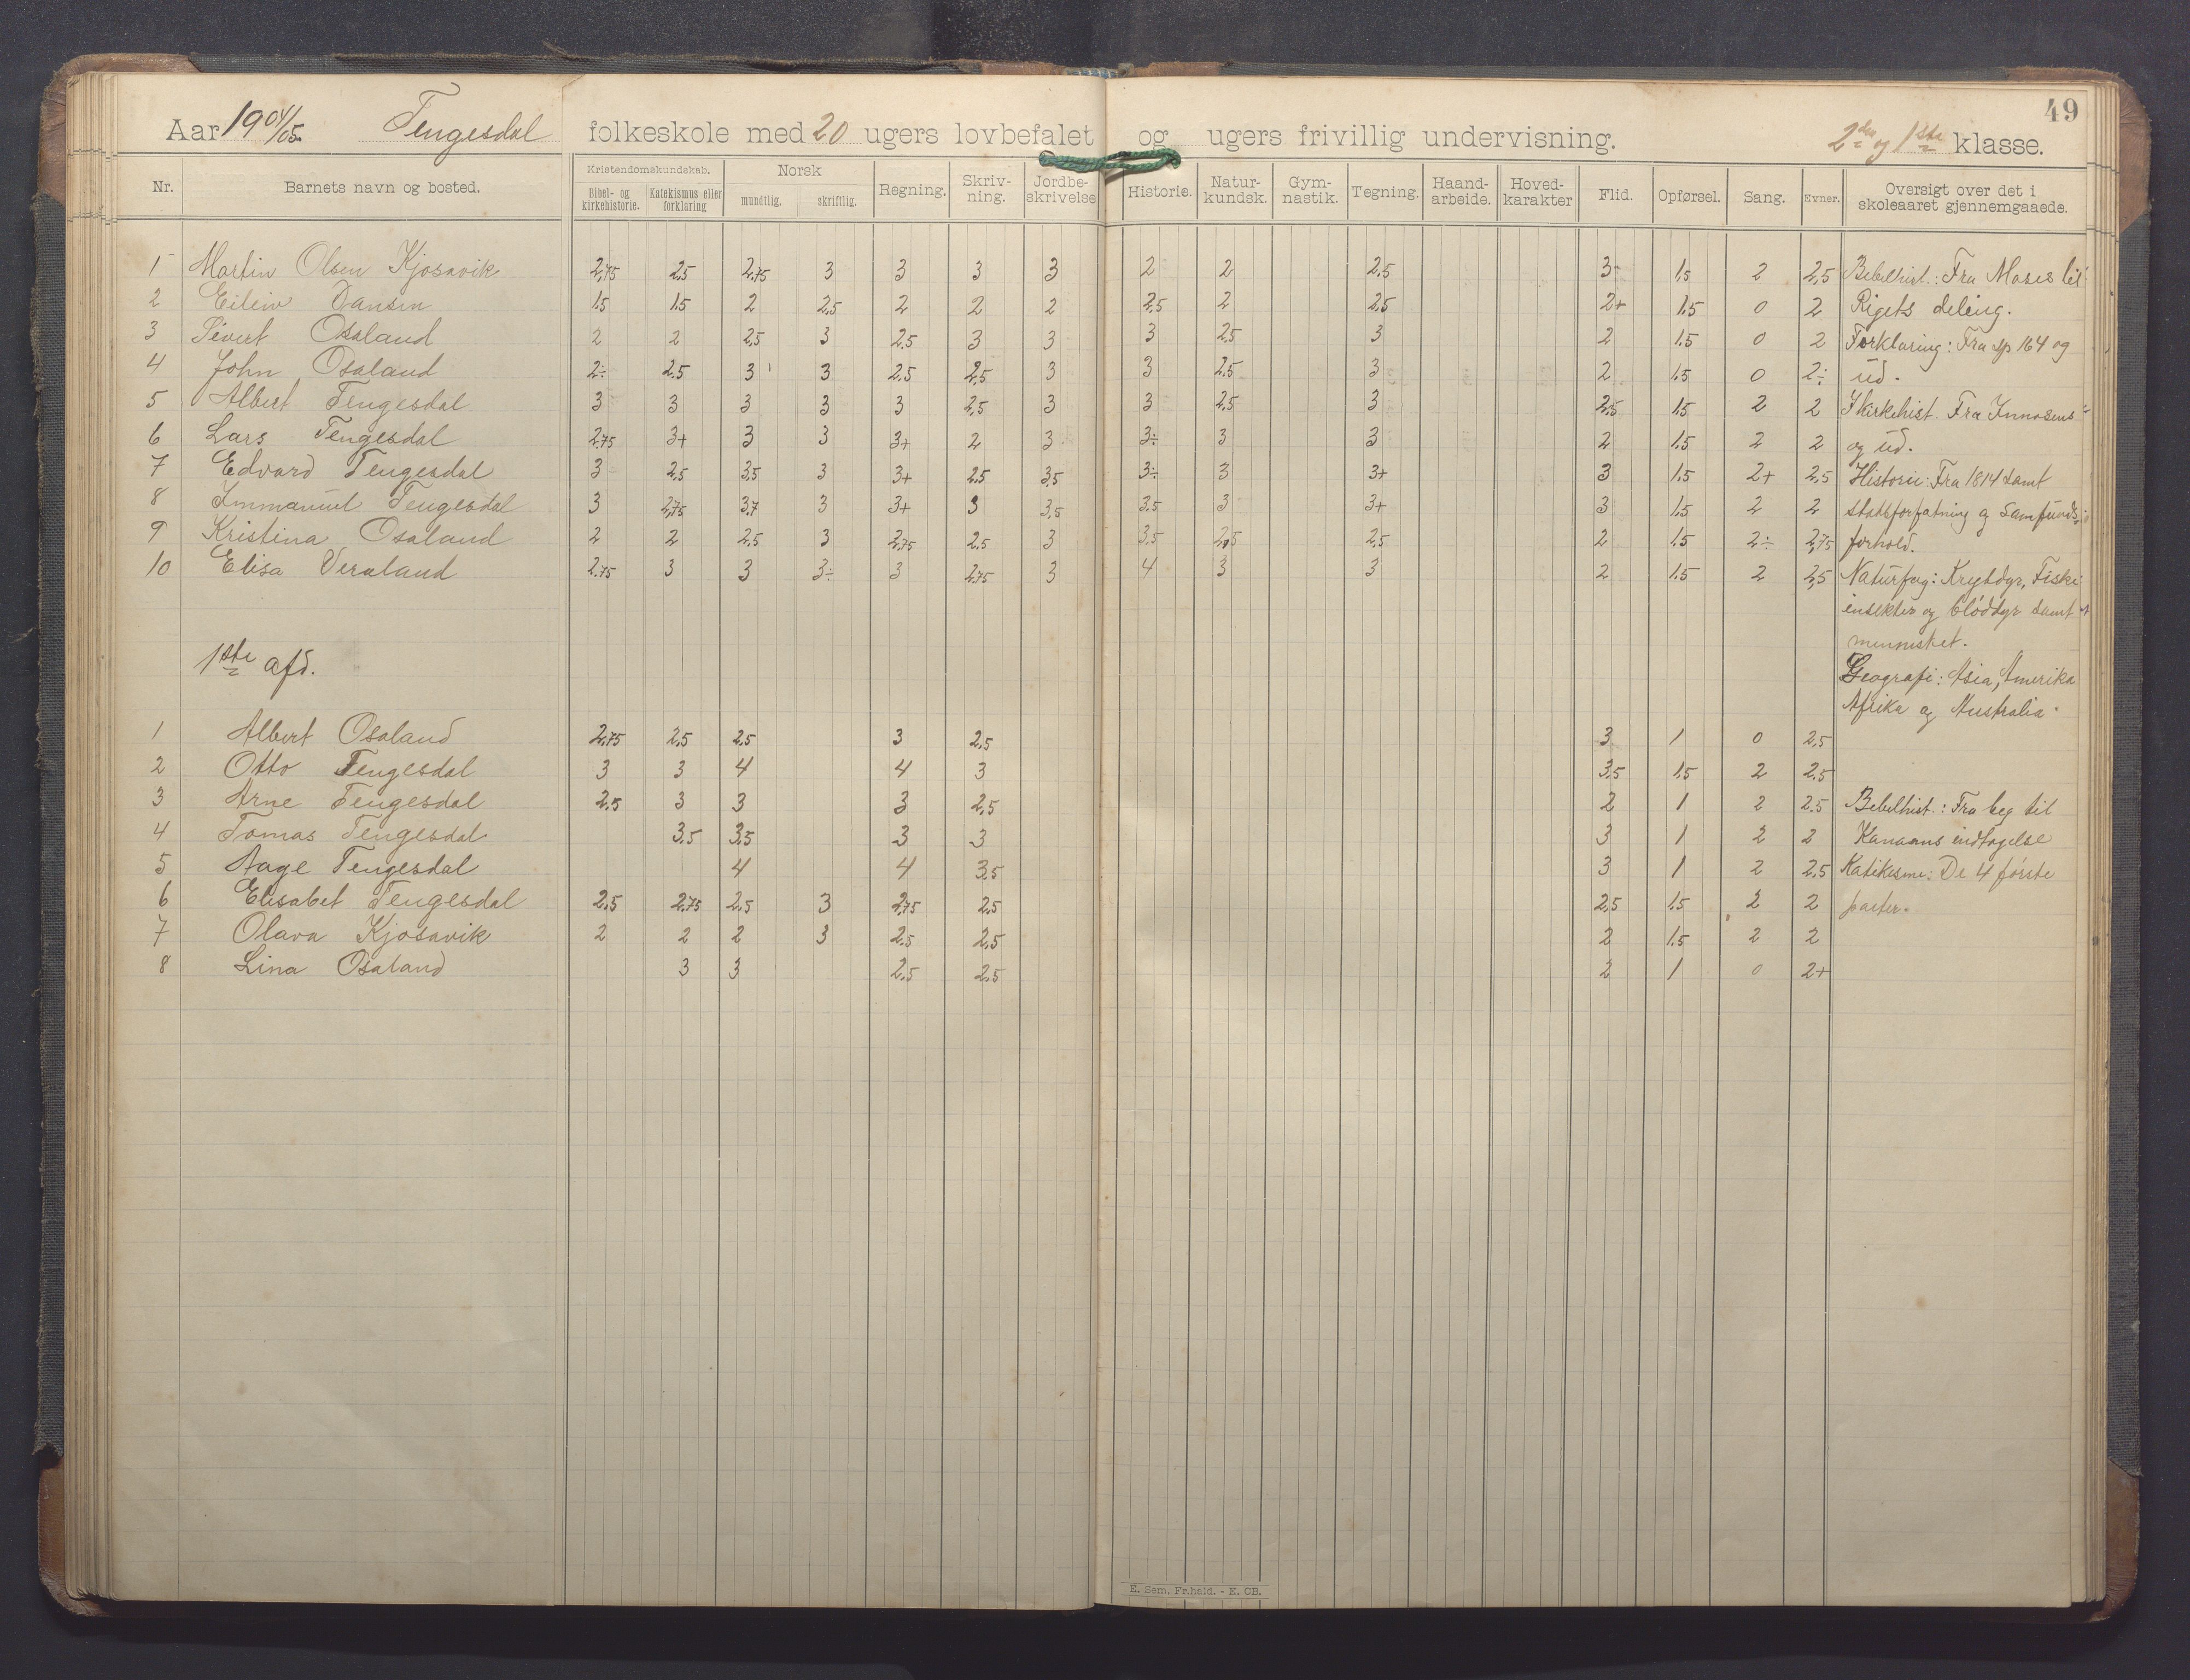 49
Aar 1904/05. Tengesdal folkeskole med 20 ugers lovbefalet og ugers frivillig undervisning. 2den og 1ste klasse.
Nr. Barnets navn og bosted. Kristendomskundskab. Bibel- og kirkehistorie. Katekismus eller forklaring Norsk mundtlig. skriftlig. Regning. Skriv-ning. Jordbe-skrivelse Historie. Natur-kundsk. Gym-nastik. Tegning. Haand-arbeide. Hoved-karakter Flid. Opførsel. Sang. Evner. Oversigt over det i skoleaaret gjennemgaaede.
1 Martin Olsen Kjosavik 2,75 2,5 2,75 3 3 3 3 2 2 2,5 3- 1,5 2 2,5 Bibelhist.: Fra Moses til
2 Eileiv Dansen 1,5 1,5 2 2,5 2 2 2 2,5 2 2,5 2+ 1,5 0 2 Rigets deling.
3 Sivert Osaland 2 2 2,5 3 2,5 3 3 3 2,5 3 2 1,5 0 2 Forklaring: Fra sp 164 og
4 John Osaland 2÷ 2,5 3 3 2,5 2,5 3 3 2,5 3 2 1,5 0 2÷ ud.
5 Albert Tengesdal 3 3 3 3 3 2,5 3 3 2,5 3 2,5 1,5 2 2 Kirkehist. Fra Innosens
6 Lars Tengesdal 2,75 3+ 3 3 3+ 2 3 3÷ 3 3 2 1,5 2 2 og ud.
7 Edvard Tengesdal 3 2,5 3,5 3 3+ 2,5 3,5 3÷ 3 3+ 3 1,5 2+ 2,5 Historie: Fra 1814 samt
8 Immanuel Tengesdal 3 2,75 3,7 3 3+ 3 3,5 3,5 3 3+ 3 1,5 2 2 statsforfatning og Samfunds-
9 Kristina Osaland 2 2 2,5 3 2,75 2,5 3 3,5 2,5 2,5 2 1,5 2÷ 2,75 forhold.
10 Elisa Veraland 2,75 3 3 3÷ 3 2,75 3 4 3 3 2 1,5 2 2,5 Naturfag: Krybdyr, Fiske
insekter og bløddyr samt
mennisket.
1ste afd.
Geografi: Asia, Amerika
Afrika og Australia.
1 Albert Osaland 2,75 2,5 2,5 3 2,5 3 1 0 2,5
2 Otto Tengesdal 3 3 4 4 3 3,5 1,5 2 2,5
3 Arne Tengesdal 2,5 3 3 3 2,5 2 1 2 2,5 Bibelhist.: Fra beg til
4 Tomas Tengesdal 3,5 3,5 3 3 3 1 2 2 Kanaans indtagelse
5 Aage Tengesdal 4 4 3,5 3 1 2 2,5 Katekisme: De 4 første
6 Elisabet Tengesdal 2,5 2,75 2,5 3 2,75 2,5 2,5 1,5 2 2 parter.
7 Olava Kjosavik 2 2 2 3 2,5 2,5 2 1,5 2 2
8 Lina Osaland 3 3 2,5 2,5 2 1 0 2+
E. Sem. Fr.hald. - E. CB.